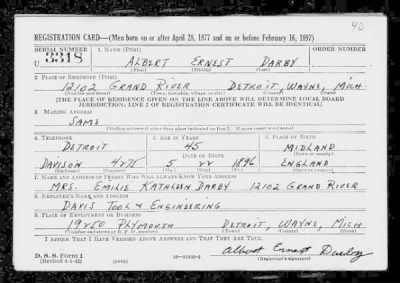 40
REGISTRATION CARD—(Men born on or after April 28, 1877 and on or before February 16, 1897)
SERIAL NUMBER 1. NAME (Print) ORDER NUMBER
U 3318 ALBERT ERNEST DARBY
(First) (Middle) (Last)
2. PLACE OF RESIDENCE (Print)
12102 GRAND RIVER DETROIT, WAYNE, MICH
(Number and street) (Town, township, village, or city) (County) (State)
[THE PLACE OF RESIDENCE GIVEN ON THE LINE ABOVE WILL DETERMINE LOCAL BOARD
JURISDICTION; LINE 2 OF REGISTRATION CERTIFICATE WILL BE IDENTICAL]
3. MAILING ADDRESS
SAME
(Mailing address if other than place indicated on line 2. If same insert word same)
4. TELEPHONE 5. AGE IN YEARS 6. PLACE OF BIRTH
DETROIT 45 MIDLAND
DATE OF BIRTH (Town or county)
DAVISON 4275 5 22 1896 ENGLAND
(Exchange) (Number) (Mo.) (Day) (Yr.) (State or country)
7. NAME AND ADDRESS OF PERSON WHO WILL ALWAYS KNOW YOUR ADDRESS
MRS. EMILIE KATHLEEN DARBY 12102 GRAND RIVER
8. EMPLOYER'S NAME AND ADDRESS
DAVIS TOOL & ENGINEERING
9. PLACE OF EMPLOYMENT OR BUSINESS
19250 PLYMOUTH DETROIT, WAYNE, MICH
(Number and street or R. F. D. number) (Town) (County) (State)
I AFFIRM THAT I HAVE VERIFIED ABOVE ANSWERS AND THAT THEY ARE TRUE.
D. S. S. Form 1 Albert Ernest Darby
(Revised 4-1-42) (over) (Registrant's signature)